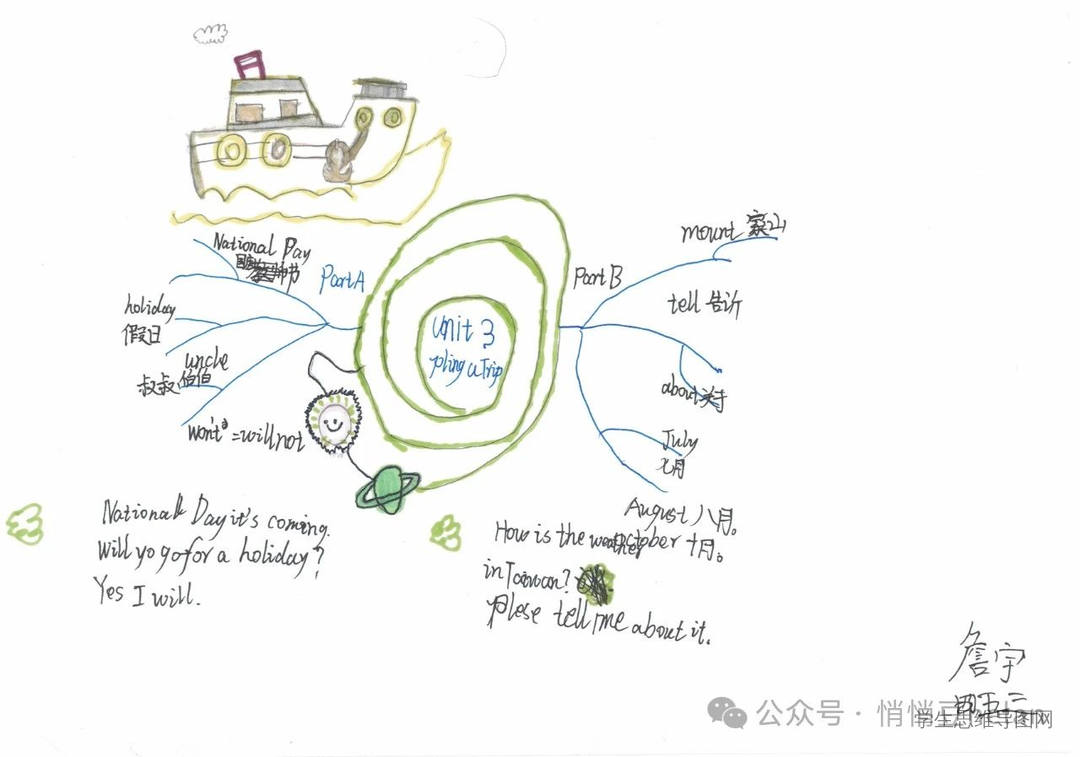 National Day
Part A
holiday
假日
uncle
叔叔伯伯
won't=will not
Unit 3
Pling a Trip
Part B
mount 蒙山
tell 告诉
about 关于
July
七月
August 八月。
October 十月。
National Day it's coming.
Will yo go for a holiday?
Yes I will.
How is the weather
in Taiwan?
Plese tell me about it.
詹宇
公众号 · 悄悄
学生思维导图网